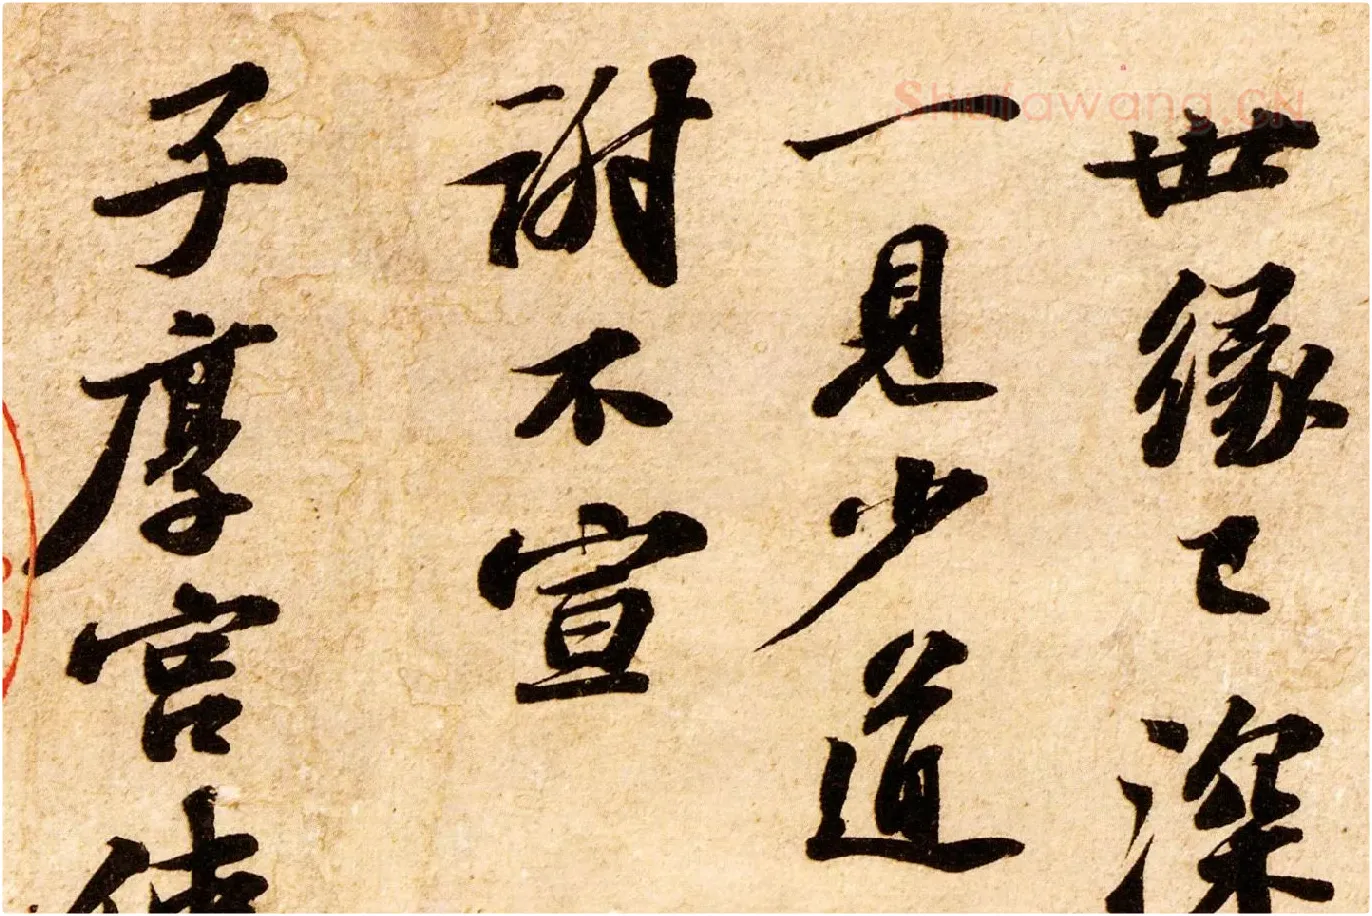 世缘已深
一見少道
謝不宣
子厚宫使
Shufawang.CN